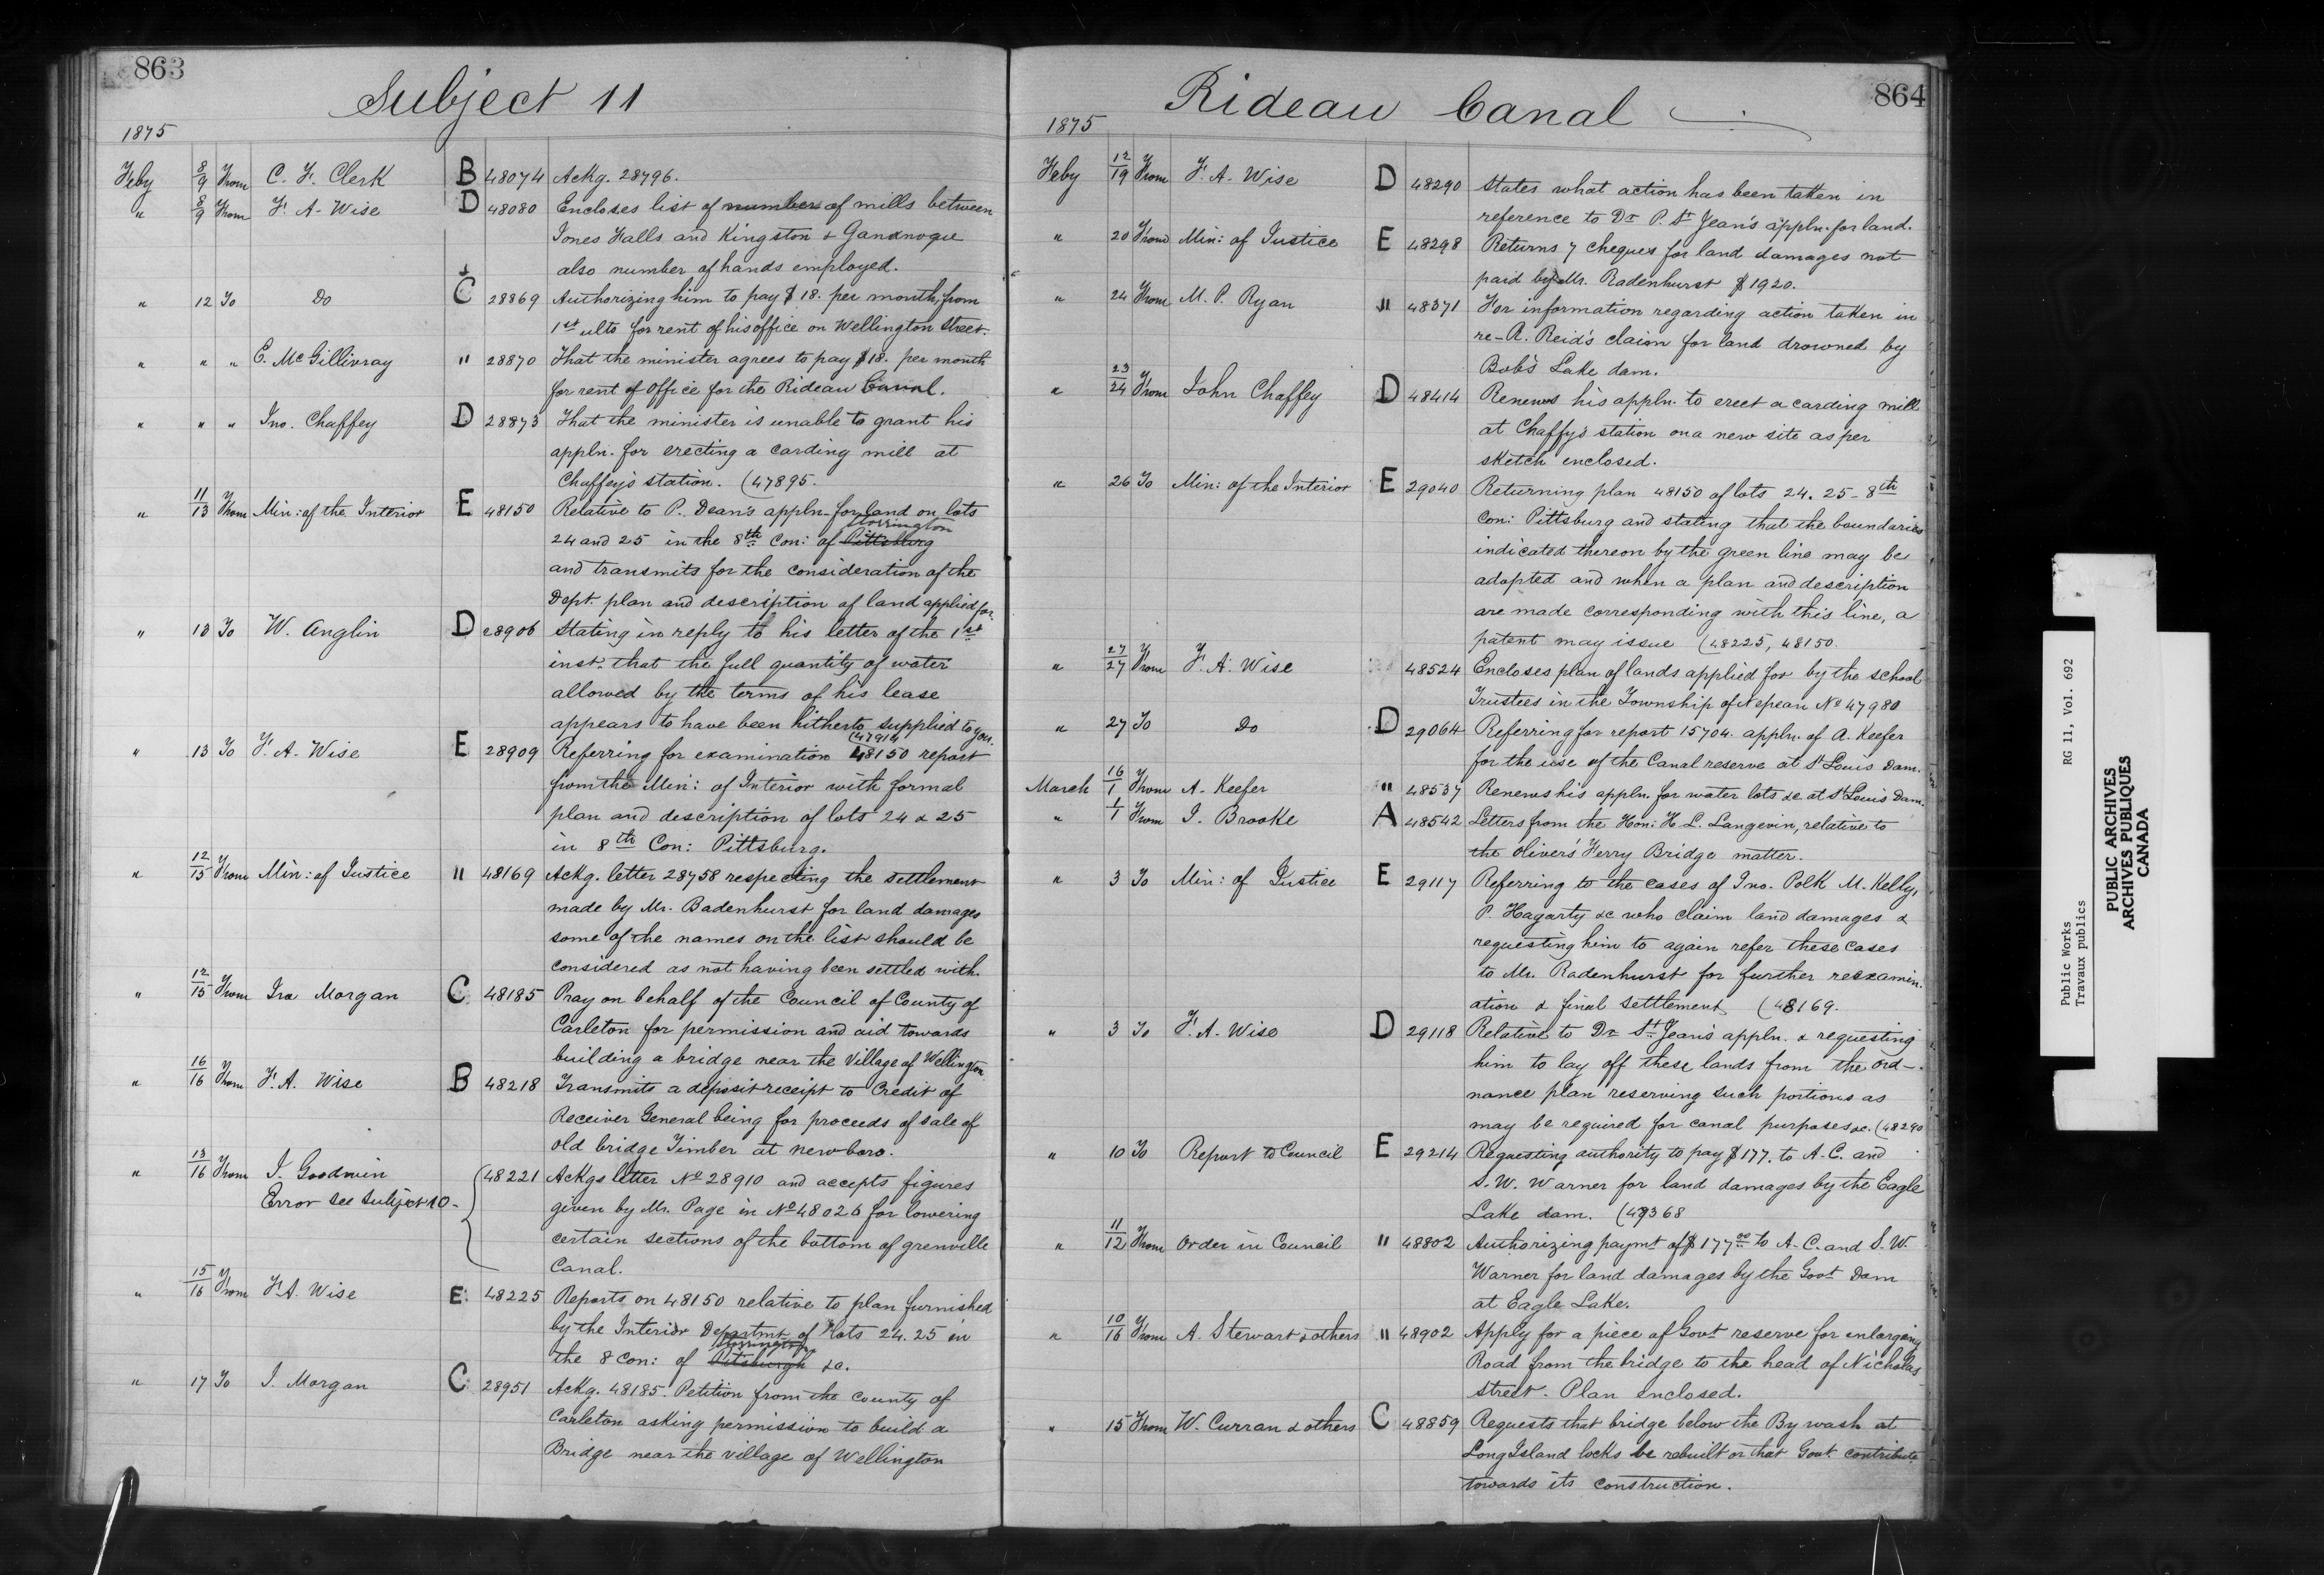 863
Subject 11
1875
Feby 8/9 From C. F. Clerk B 48074 Ackg. 28796.
" 8/9 From F. A. Wise D 48080 Encloses list of number of mills between
Jones Falls and Kingston & Gananoque
also number of hands employed.
" 12 To Do C 28869 Authorizing him to pay $18. per month, from
1st ulto for rent of his office on Wellington Street.
" " " E. McGillivray " 28870 That the minister agrees to pay $18. per month
for rent of Office for the Rideau Canal.
" " " Jno. Chaffey D 28873 That the minister is unable to grant his
appln. for erecting a carding mill at
Chaffey's station. (47895.
" 11/13 From Min: of the Interior E 48150 Relative to P. Dean's appln. for land on lots
Storrington
24 and 25 in the 8th Con: of Pittsburg
and transmits for the consideration of the
Dept. plan and description of land applied for.
" 13 To W. Anglin D 28906 Stating in reply to his letter of the 1st
inst. that the full quantity of water
allowed by the terms of his lease
appears to have been hitherto supplied to you.
(47914
" 13 To F. A. Wise E 28909 Referring for examination 48150 report
from the Min: of Interior with formal
plan and description of lots 24 & 25
in 8th Con: Pittsburg.
" 12/15 From Min: of Justice " 48169 Ackg. letter 28758 respecting the settlement
made by Mr. Badenhurst for land damages
some of the names on the list should be
considered as not having been settled with.
" 12/15 From Ira Morgan C 48185 Pray on behalf of the Council of County of
Carleton for permission and aid towards
building a bridge near the Village of Wellington
" 16/16 From F. A. Wise B 48218 Transmits a deposit receipt to Credit of
Receiver General being for proceeds of sale of
old bridge Timber at newboro.
" 13/16 From J. Goodwin (48221 Ackgs letter No 28910 and accepts figures
Error see Subject 10- given by Mr. Page in No 48026 for lowering
certain sections of the bottom of grenville
Canal.
" 15/16 From F. A. Wise E 48225 Reports on 48150 relative to plan furnished
by the Interior Departmt. of lots 24. 25 in
Storrington
the 8 Con: of Pitsburgh &c.
" 17 To I. Morgan C 28951 Ackg. 48185. Petition from the County of
Carleton asking permission to build a
Bridge near the village of Wellington
864
Rideau Canal
1875
Feby 12/19 From F. A. Wise D 48290 States what action has been taken in
reference to Dr P. St Jean's appln. for land.
" 20 From Min: of Justice E 48298 Returns 7 cheques for land damages not
paid by Mr. Radenhurst $1920.
" 24 From M. P. Ryan " 48371 For information regarding action taken in
re-A. Reid's claim for land drowned by
Bob's Lake dam.
" 23/24 From John Chaffey D 48414 Renews his appln. to erect a carding mill
at Chaffy's station on a new site as per
sketch enclosed.
" 26 To Min: of the Interior E 29040 Returning plan 48150 of lots 24. 25 - 8th
Con: Pittsburg and stating that the boundaries
indicated thereon by the green line may be
adopted and when a plan and description
are made corresponding with this line, a
patent may issue (48225, 48150.
" 27/27 From F. A. Wise 48524 Encloses plan of lands applied for by the school
Trustees in the Township of Nepean No 47980
" 27 To Do D 29064 Referring for report 15704. appln. of A. Keefer
for the use of the Canal reserve at St Louis Dam.
March 16/1 From A. Keefer " 48537 Renews his appln. for water lots &c at St Louis Dam.
" 1/1 From J. Brooke A 48542 Letters from the Hon: H. L. Langevin, relative to
the Oliver's Ferry Bridge matter.
" 3 To Min: of Justice E 29117 Referring to the cases of Jno. Polk M. Kelly,
P. Hagarty &c who claim land damages &
requesting him to again refer these cases
to Mr. Radenhurst for further reexamin.
ation & final settlement (48169.
" 3 To F. A. Wise D 29118 Relative to Dr St Jean's appln. & requesting
him to lay off these lands from the ord-
nance plan reserving such portions as
may be required for canal purposes &c. (48290
" 10 To Report to Council E 29214 Requesting authority to pay $177. to A. C. and
S. W. Warner for land damages by the Eagle
Lake dam. (47368
" 11/12 From Order in Council " 48802 Authorizing paymt of $177.00 to A. C. and S. W.
Warner for land damages by the Govt Dam
at Eagle Lake.
" 10/16 From A. Stewart & others " 48902 Apply for a piece of Govt reserve for enlarging
Road from the bridge to the head of Nicholas
street. Plan enclosed.
" 15 From W. Curran & others C 48859 Requests that bridge below the By wash at
Long Island locks be rebuilt or that Govt. contribute
towards its construction.
Public Works RG 11, Vol. 692
Travaux publics
PUBLIC ARCHIVES
ARCHIVES PUBLIQUES
CANADA